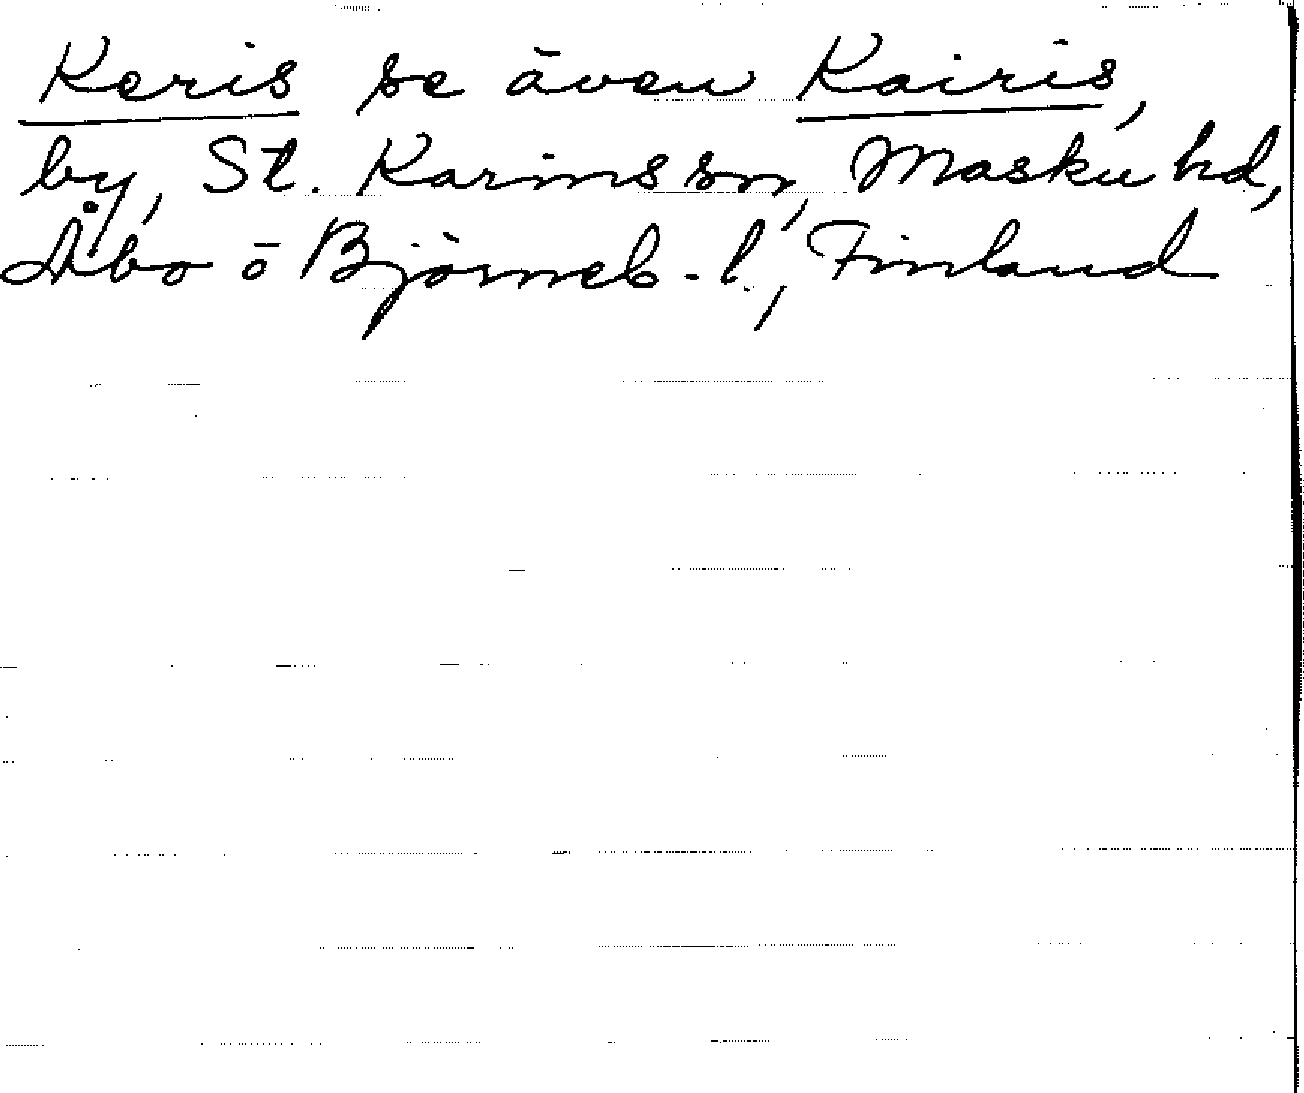 Keris se även Kairis,
by, St. Karins sn, Masku hd,
Åbo o Björneb.-l., Finland